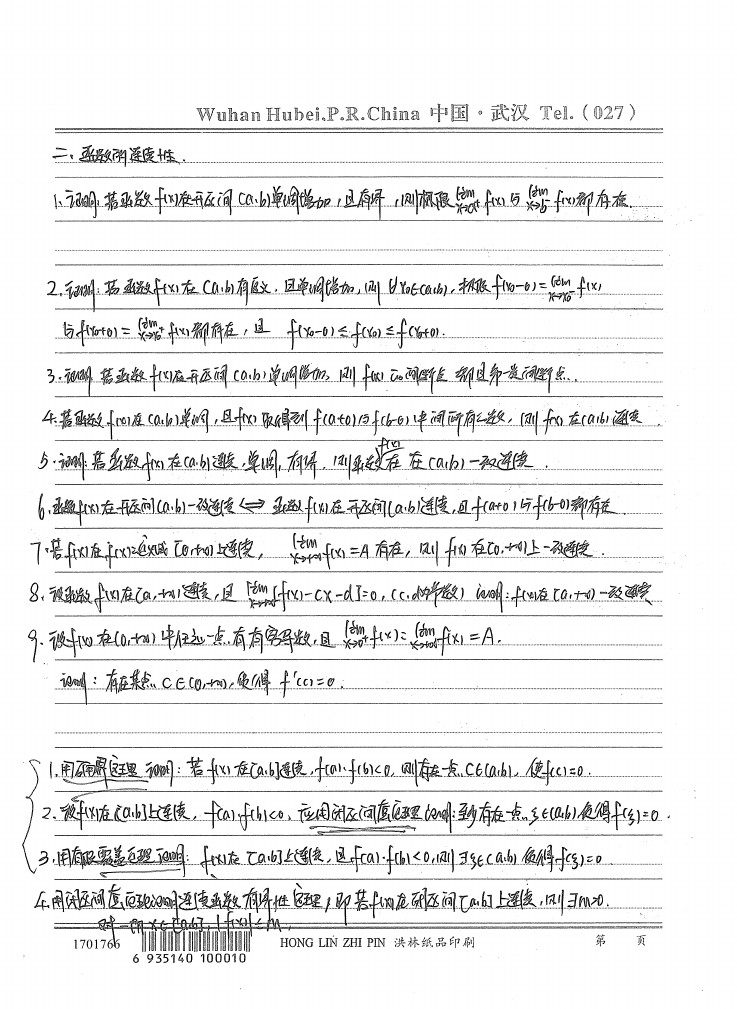 Wuhan Hubei,P.R.China 中国·武汉 Tel.(027)
二、函数的连续性.
1、证明:若函数f(x)在开区间(a,b)单调增加,且有界,则极限lim x→a+ f(x)与lim x→b- f(x)都存在.
2.证明:若函数f(x)在(a,b)有定义,且单调增加,则∀x0∈(a,b),极限f(x0-0)=lim x→x0- f(x)
与f(x0+0)=lim x→x0+ f(x)都存在,且 f(x0-0)≤f(x0)≤f(x0+0).
3.证明 若函数f(x)在开区间(a,b)单调增加,则f(x)的间断点都是第一类间断点.
4.若函数f(x)在(a,b)单调,且f(x)取得到f(a+0)与f(b-0)中间所有之数,则f(x)在(a,b)连续.
5.证明:若函数f(x)在(a,b)连续,单调,有界,则函数f(x)在(a,b)一致连续.
6.函数f(x)在开区间(a,b)一致连续⟺函数f(x)在开区间(a,b)连续,且f(a+0)与f(b-0)都存在.
7.若f(x)在 [0,+∞)上连续, lim x→+∞ f(x)=A存在,则f(x)在[0,+∞)上一致连续.
8.设函数f(x)在[a,+∞)连续,且lim x→+∞ [f(x)-cx-d]=0,(c,d为常数) 证明:f(x)在[a,+∞)一致连续
9.设f(x)在(0,+∞)中任意一点有有穷导数,且lim x→0+ f(x)=lim x→+∞ f(x)=A.
证明:存在某点 C∈(0,+∞),使得 f'(c)=0.
1.用确界定理证明:若f(x)在[a,b]连续,f(a)·f(b)<0,则存在一点C∈(a,b),使f(c)=0.
2.设f(x)在[a,b]上连续,f(a)·f(b)<0,应用闭区间套定理证明:至少存在一点ξ∈(a,b),使得f(ξ)=0.
3.用有限覆盖定理证明:f(x)在[a,b]上连续,且f(a)·f(b)<0,则∃ξ∈(a,b)使得f(ξ)=0
4.用闭区间套定理证明连续函数有界性定理,即若f(x)在闭区间[a,b]上连续,则∃M>0.
对一切x∈[a,b],|f(x)|≤M.
1701766 HONG LIN ZHI PIN 洪林纸品印刷 第 页
6 935140 100010